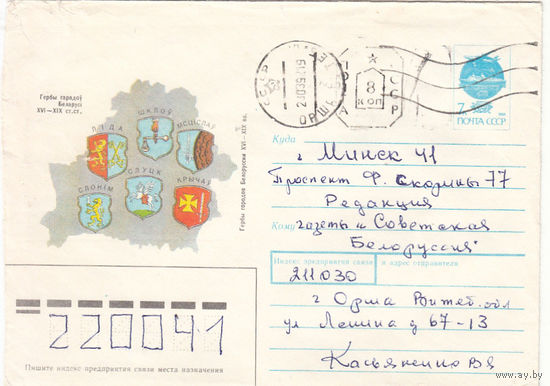 Гербы гарадоў
Беларусі
XVI—XIX ст.ст.
ЛІДА
ШКЛОЎ
МСЦІСЛАЎ
СЛОНІМ
СЛУЦК
КРЫЧАЎ
Гербы городов Белоруссии XVI—XIX вв.
СССР
ОРША
8
КОП
СССР
7
ПОЧТА СССР
Куда
г Минск 41
Проспект Ф. Скорины 77
Редакция
Кому газеты "Советская
Белоруссия"
Индекс предприятия связи и адрес отправителя
211030
г Орша Витеб. обл
ул Ленина д 67-13
Касьяненко ВЯ
220041
Пишите индекс предприятия связи места назначения
www.ay.by